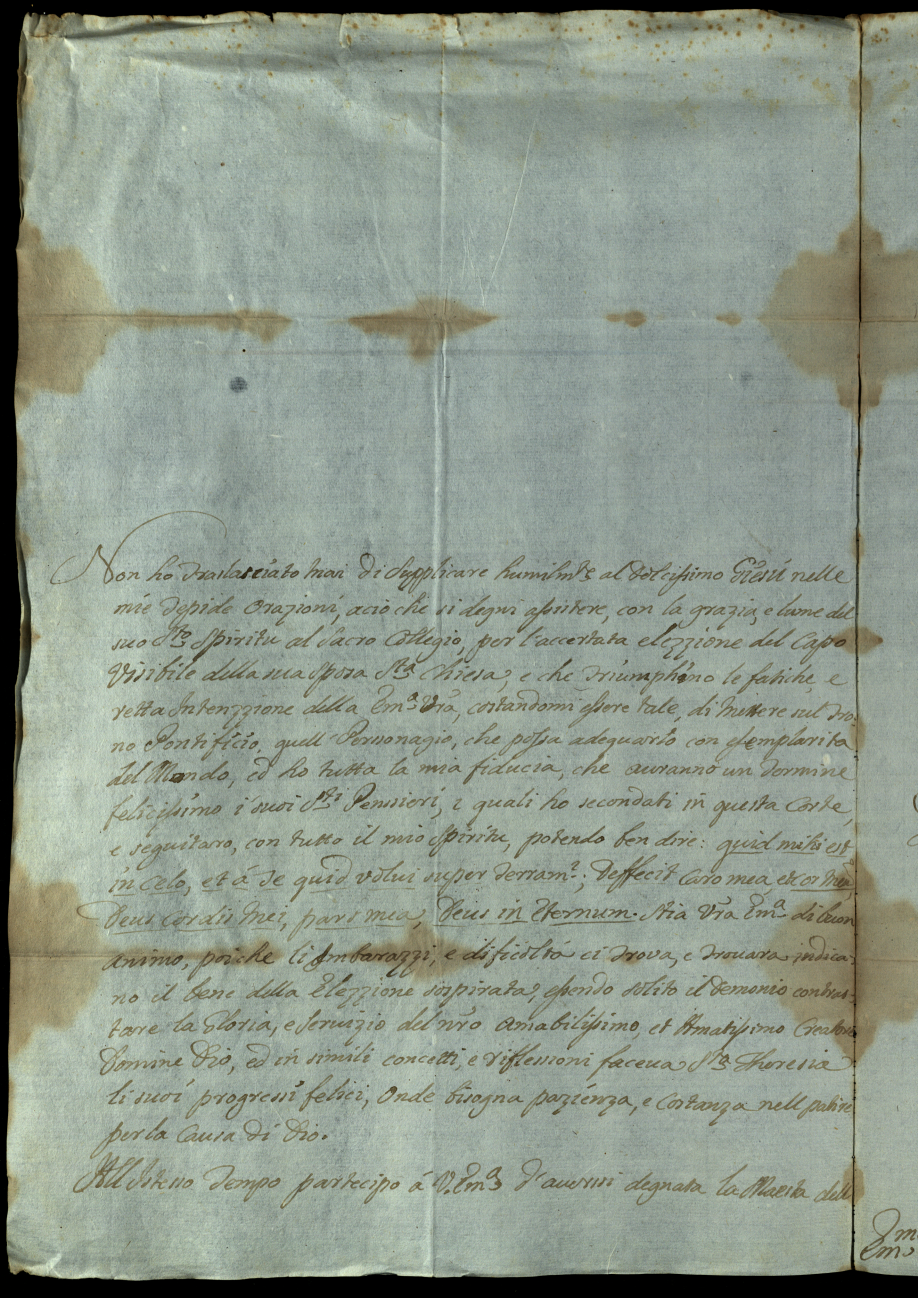 Non hò traslasciato mai di supplicare humilmte al dolcissimo Giesú nelle
mie tepide orazioni, aciò che si degni assistere, con la grazia, e lume del
suo Sto Spiritu al Sacro Collegio, per l'accertata elezzione del Capo
Visibile della sua sposa Sta Chiesa, e che triumphino le fatiche, e
retta Intenzzione della Emª Vrã, costandomi essere tale, di mettere sul tro:
no Pontificio, quell Personagio, che possa adequarsi con esemplarita
del Mondo, ed ho tutta la mia fiducia, che auranno un termine
felicissimo i suoi Sti Penssieri, i quali ho secondati in questa Corte,
e seguitaro, con tutto il mio Spiritu, potendo ben dire: quid mihi est
in Celo, et á te quid volui super terram?; Deffecit Caro mea, et cor meũ,
Deus Cordis mei, pars mea, Deus in Eternum. Stia Vrã Emª di buon
animo, poiche li Imbarazzi, e dificoltà ci trova, e trouara indica:
no il bene della Elezzione sospirata, essendo solito il Demonio contras:
tare la Gloria, e Seruizio del nr̃o amabilissimo, et Amatissimo Creatore
Domine Dio, ed in simili concetti, e riflessioni faceua Sta Theresia
li suoi progressi felici, Onde bisogna pazienza, e costanza nell patire
per la Causa di Dio.
All Istesso tempo partecipo á V. Emª d'auersi degnata la Maestà dell